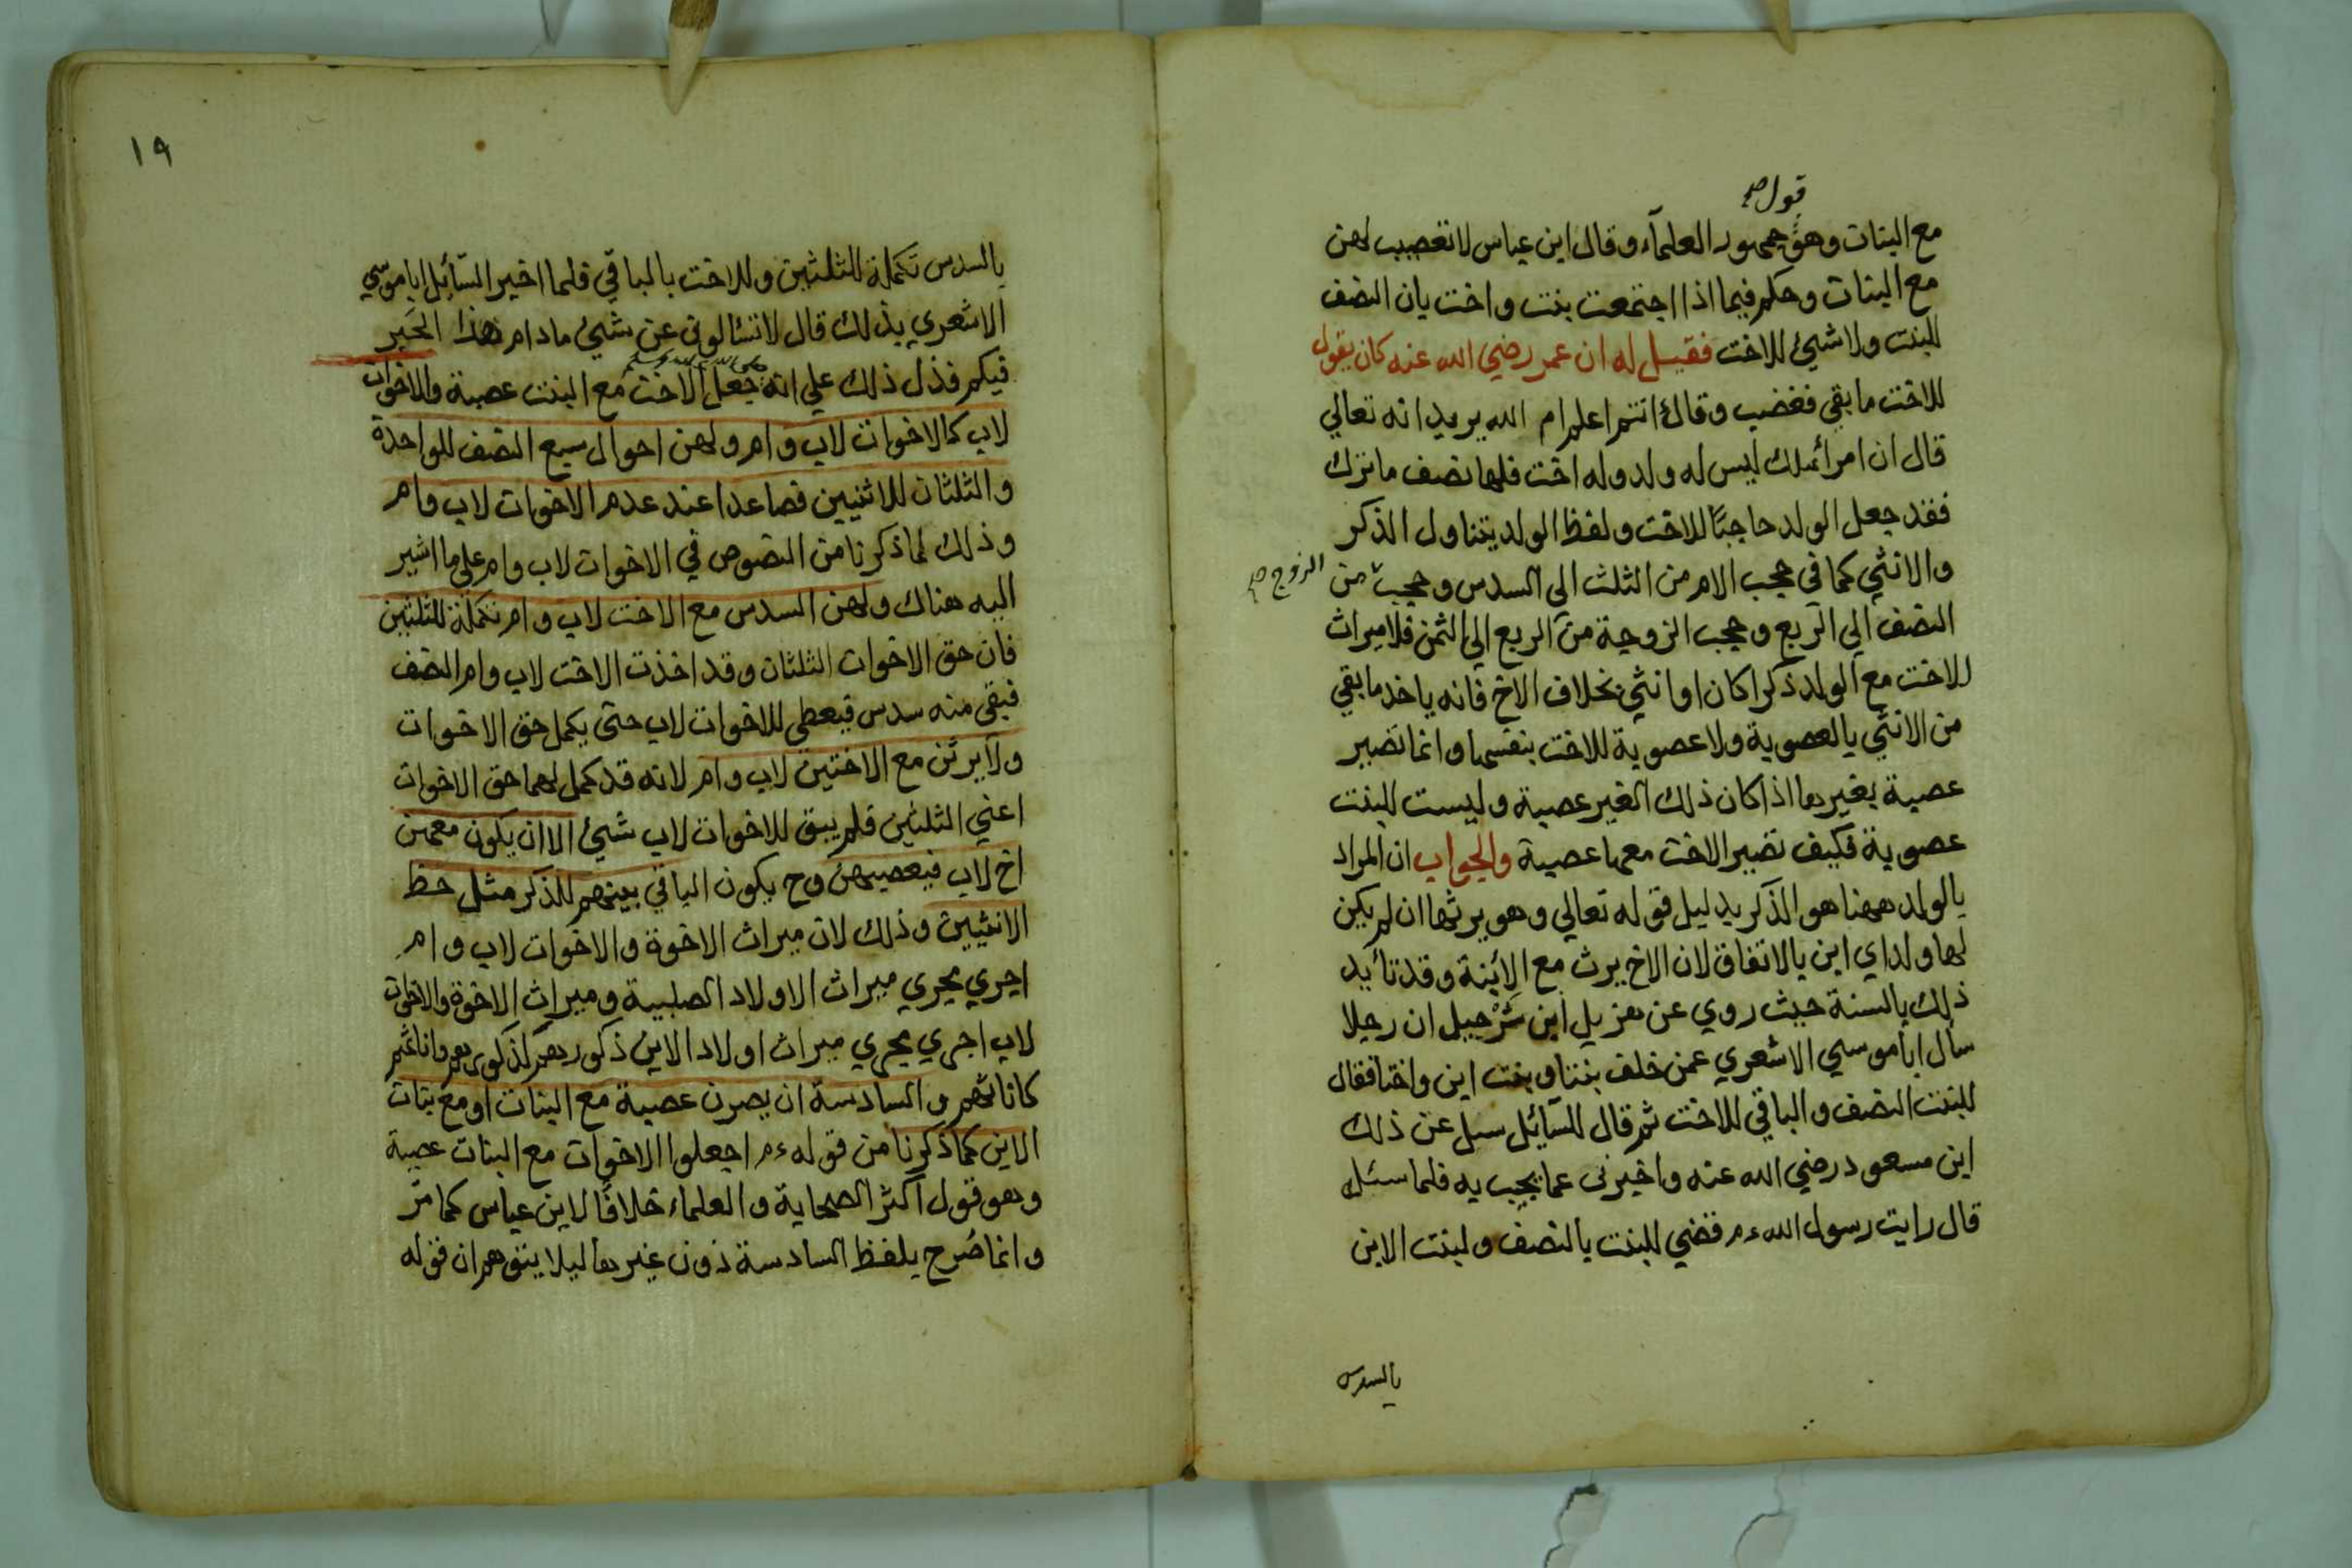 قول صح
مع البنات وهو جمهور العلمآء وقال ابن عباس لا تعصيب لهن
مع البنات وحكم فيما اذا اجتمعت بنت واخت بان النصف
للبنت ولا شيئ للاخت فقيل له ان عمر رضي الله عنه كان يقول
للاخت ما بقي فغضب وقال انتم اعلم ام الله يريد انه تعالي
قال ان امرأ هلك ليس له ولد وله اخت فلها نصف ما ترك
فقد جعل الولد حاجبًا للاخت ولفظ الولد يتناول الذكر
والانثي كما في حجب الام من الثلث الي السدس وحجب من
الزوج صح
النصف الي الربع وحجب الزوجة من الربع الي الثمن فلا ميراث
للاخت مع الولد ذكرا كان او انثي بخلاف الاخ فانه ياخذ ما بقي
من الانثي بالعصوبة ولا عصوبة للاخت بنفسها وانما تصير
عصبة بغيرها اذا كان ذلك الغير عصبة وليست للبنت
عصوبة فكيف تصير الاخت معها عصبة والجواب ان المراد
بالولد ههنا هو الذكر بدليل قوله تعالي وهو يرثها ان لم يكن
لها ولد اي ابن بالاتفاق لان الاخ يرث مع الابنة وقد تأيد
ذلك بالسنة حيث روي عن هزيل ابن شرحبيل ان رجلا
سأل ابا موسي الاشعري عمن خلف بنتا وبنت ابن واختا فقال
للبنت النصف والباقي للاخت ثم قال للسآئل سل عن ذلك
ابن مسعود رضي الله عنه واخبرني عما يجيب به فلما سئل
قال رايت رسول الله ءم قضي للبنت بالنصف ولبنت الابن
بالسدس
١٩
بالسدس تكملة للثلثين وللاخت بالباقي فلما اخبر السآئل ابا موسي
الاشعري بذلك قال لا تسئالوني عن شيئ مادام هذا الحَبر
فيكم فدل ذلك علي انه جعل الاخت مع البنت عصبة والاخوات
صلى الله عليه وسلم
لاب كالاخوات لاب وام ولهن احوال سبع النصف للواحدة
والثلثان للاثنين فصاعدا عند عدم الاخوات لاب وام
وذلك لما ذكرنا من النصوص في الاخوات لاب وام علي ما اشير
اليه هناك ولهن السدس مع الاخت لاب وام تكملة للثلثين
فان حق الاخوات الثلثان وقد اخذت الاخت لاب وام النصف
فبقي منه سدس فيعطي للاخوات لاب حتي يكمل حق الاخوات
ولا يرثن مع الاختين لاب وام لانه قد كمل لهما حق الاخوات
اعني الثلثين فلم يبق للاخوات لاب شيئ الا ان يكون معهن
اخ لاب فيعصبهن وح يكون الباقي بينهم للذكر مثل حظ
الانثيين وذلك لان ميراث الاخوة والاخوات لاب وام
اجري مجري ميراث الاولاد الصلبية وميراث الاخوة والاخوات
لاب اجري مجري ميراث اولاد الابن ذكورهم كذكورهم واناثهم
كاناثهم والسادسة ان يصرن عصبة مع البنات او مع بنات
الابن كما ذكرنا من قوله ءم اجعلوا الاخوات مع البنات عصبة
وهو قول اكثر الصحابة والعلماء خلافًا لابن عباس كما مرّ
وانما صُرح بلفظ السادسة دون غيرها ليلا يتوهم ان قوله